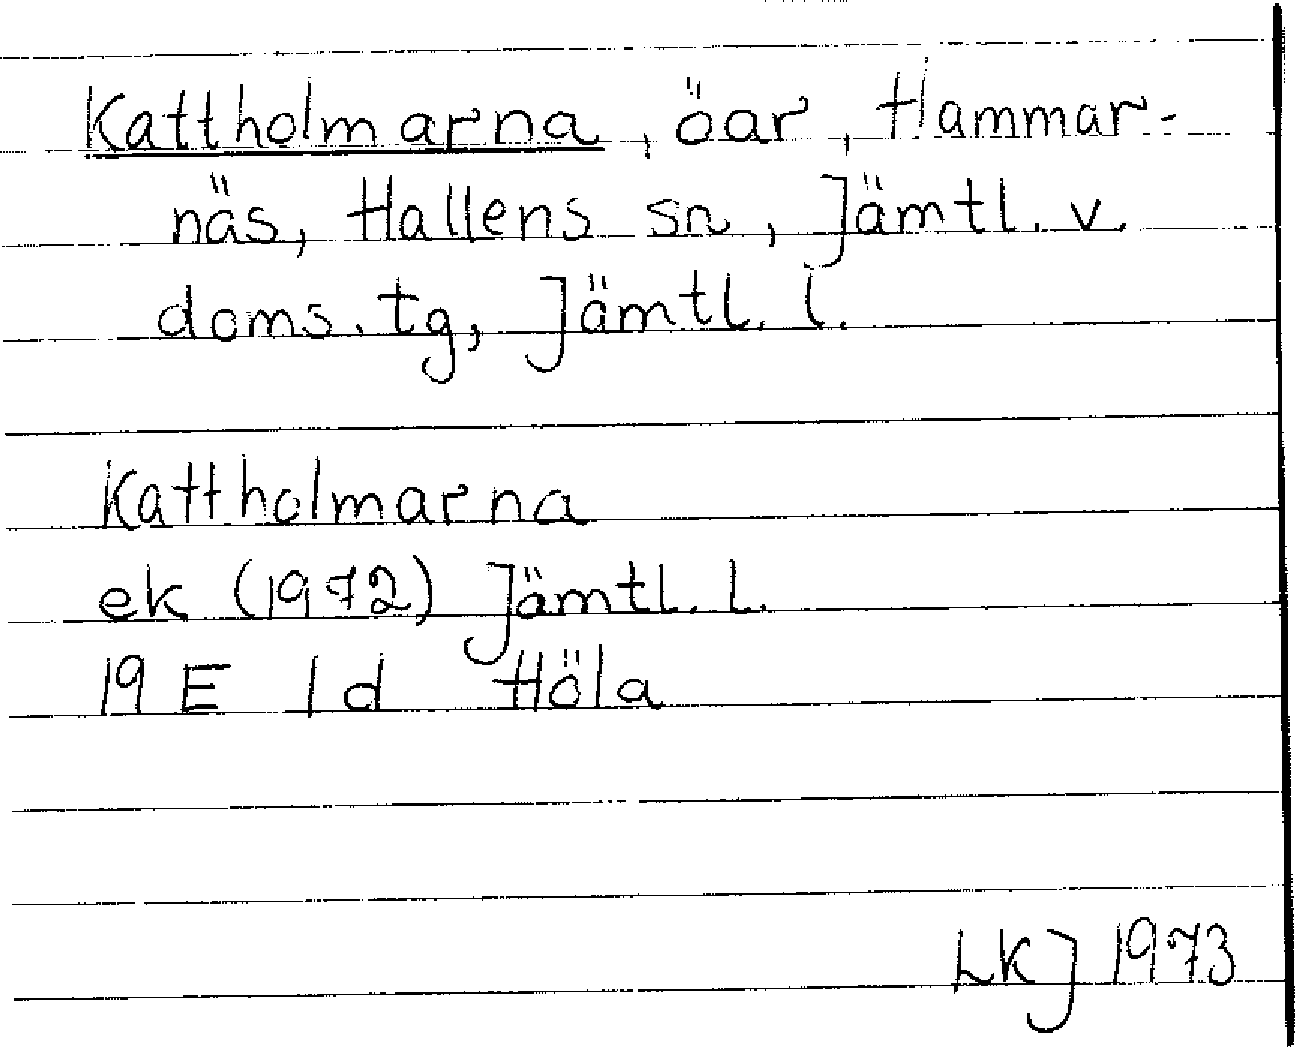 Kattholmarna, öar, Hammar-
näs, Hallens sn, Jämtl. v.
doms. tg, Jämtl. l.
Kattholmarna
ek (1972) Jämtl. L.
19 E 1d Höla
LKJ 1973